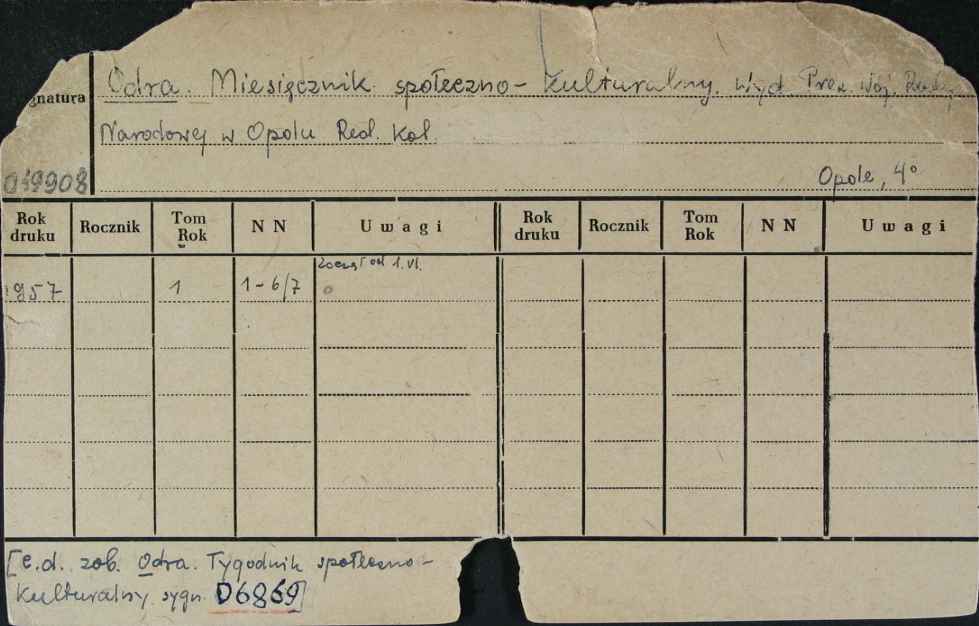 gnatura
Odra. Miesięcznik społeczno-kulturalny. Wyd. Prez. Woj. Rady
Narodowej w Opolu Red. Kol.
019908
Opole, 4°
Rok druku Rocznik Tom Rok N N Uwagi Rok druku Rocznik Tom Rok N N Uwagi
od 1.VI.
1957 1 1-6/7
[c.d. zob. Odra. Tygodnik społeczno-
kulturalny sygn. D6869]